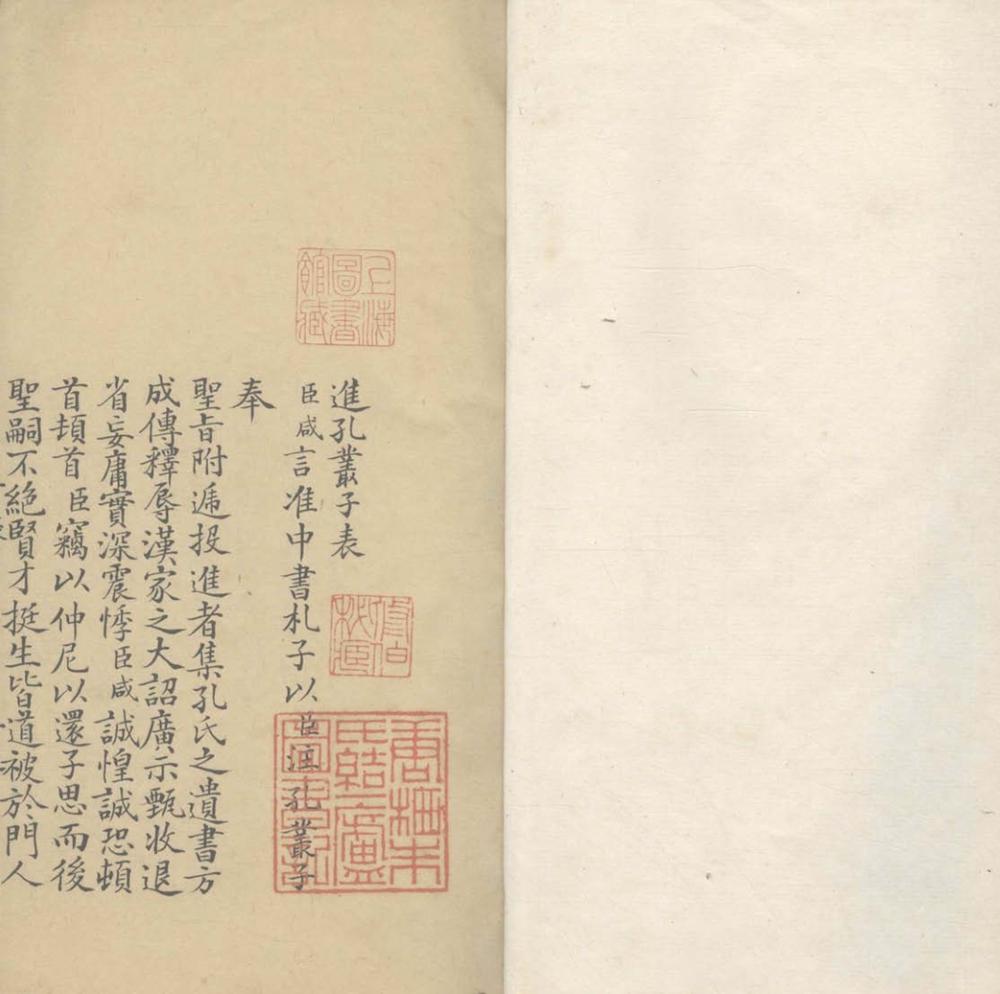 進孔叢子表
臣咸言准中書札子以臣注孔叢子
奉
聖旨附遞投進者集孔氏之遺書方
成傳釋辱漢家之大詔廣示甄收退
省妄庸實深震悸臣咸誠惶誠恐頓
首頓首臣竊以仲尼以還子思而後
聖嗣不絶賢才挺生皆道被於門人
上海圖書館藏
唐栖朱氏結廬圖書記